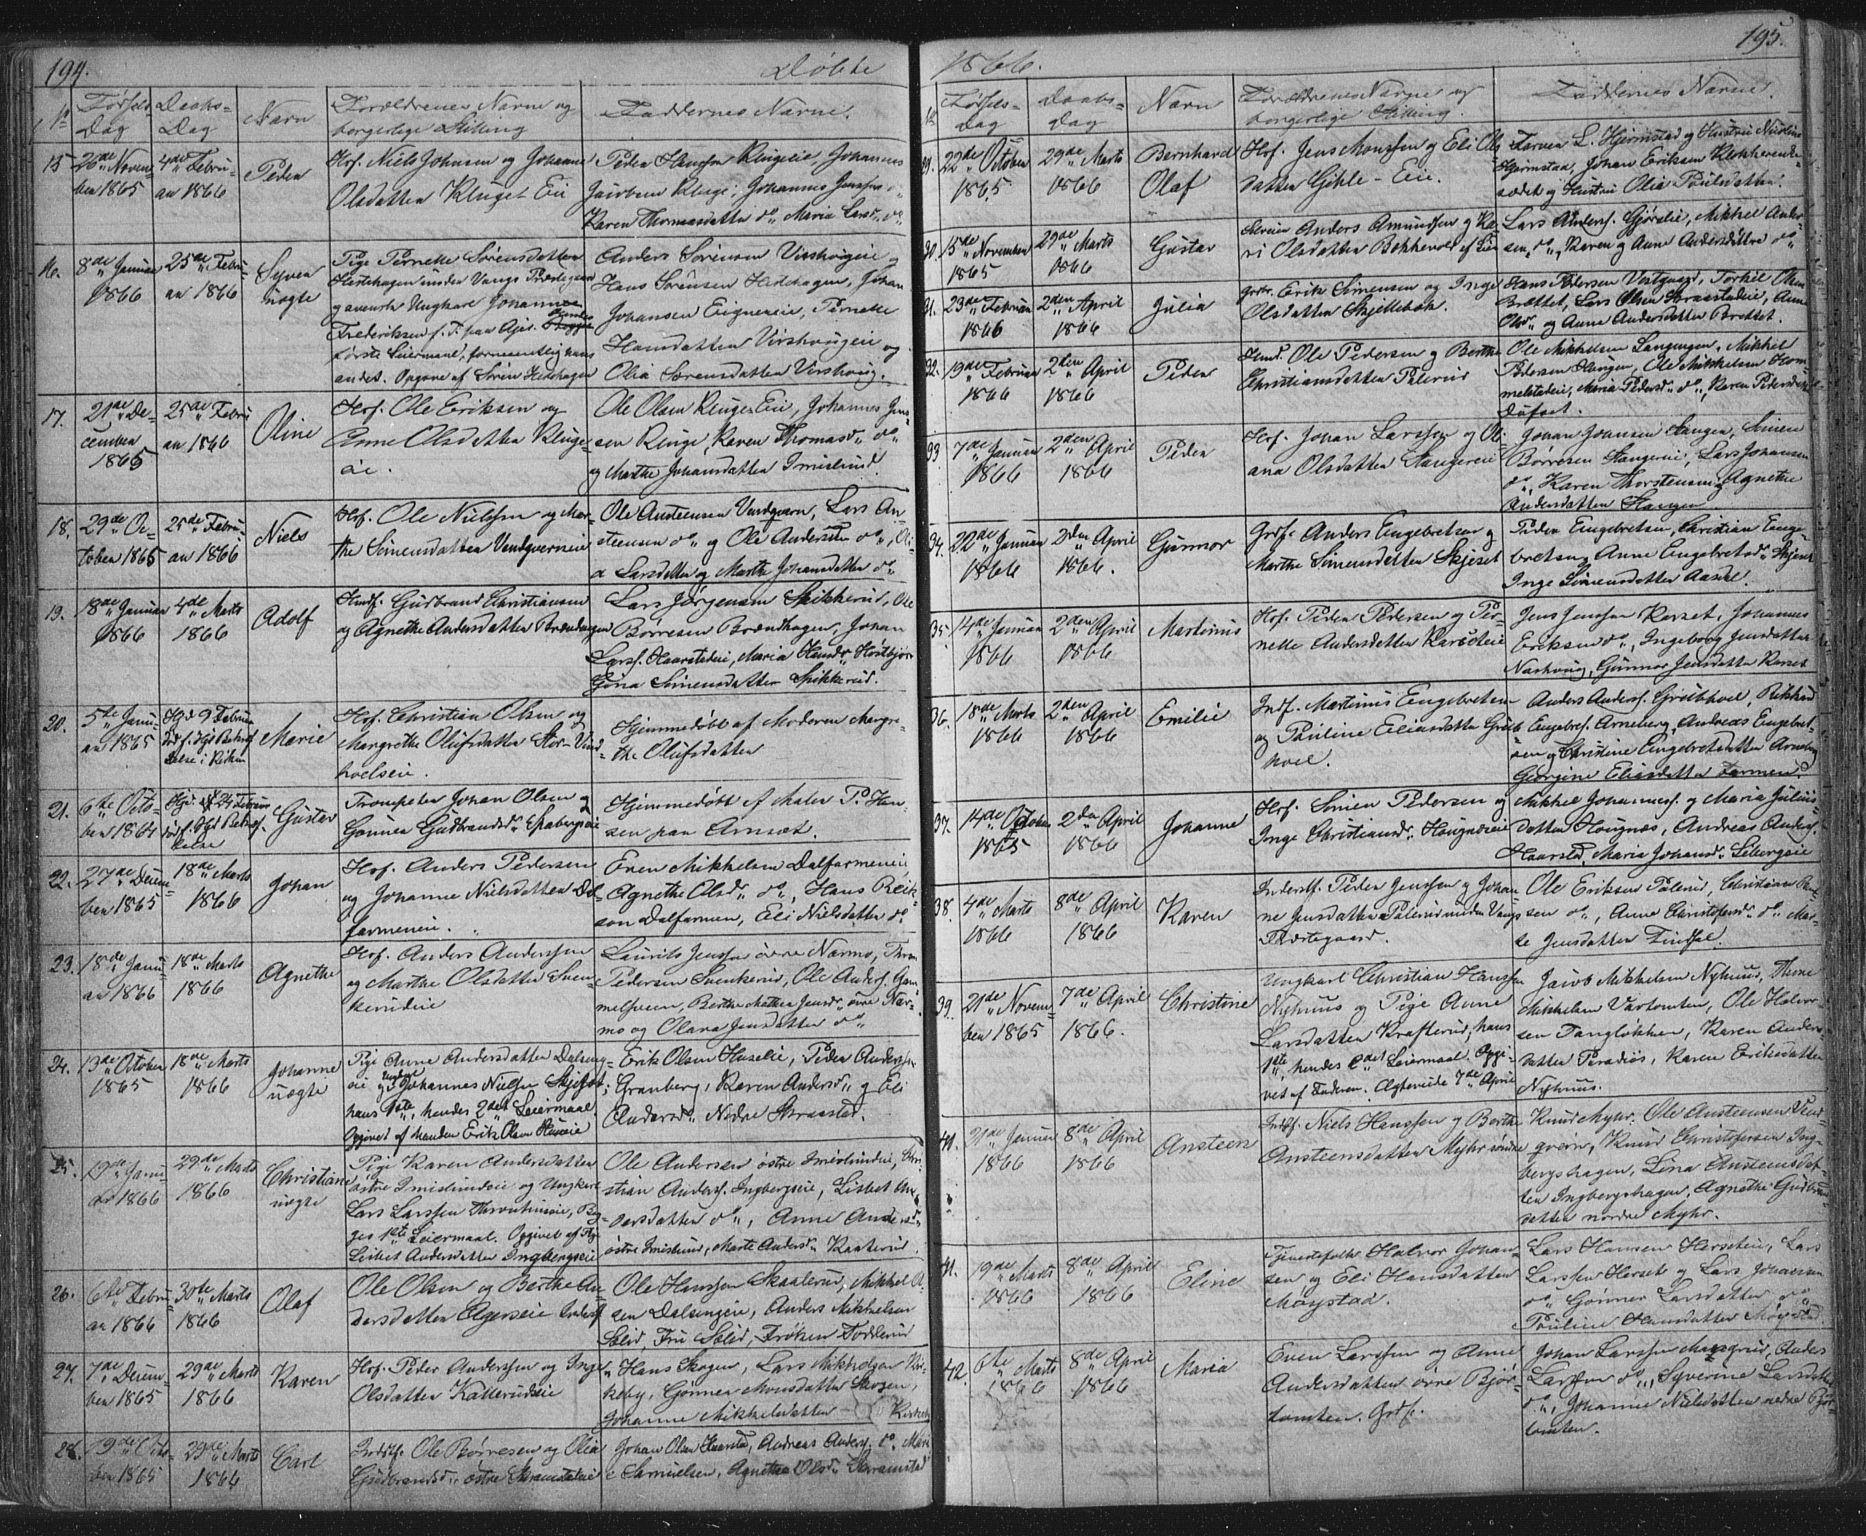 194.
Døbte
No
Fødsels
Dag
Daabs-
Dag
Navn
Forældrenes Navne og
borgerlige Stilling
Faddernes Navne.
15
26de Novem-
ber 1865
4de Febru-
ar 1866
Peder
Hof. Niels Johnsen og Johanne
Olsdatter Kluget Eie
Peder Hansen Ringeie, Johannes
Karen Thomasdatter do, Maria Larsd. do
16.
8de Januar
1866
25de Febru-
ar 1866
Syver
uægte
Pige Pernelle Sørensdatter
Hedehagen under Vangs Præstegaard
Frederiksen
første Leiermaal, formeentlig hans
andet. Opgave af Søren Hedehagen
Anders Sørensen Virshougeie
Hans Sørensen Hedehagen, Johan
Johansen Eigneseie, Pernelle
Hansdatter Virshougeie og
Olia Sørensdatter Virshoug.
17.
21de De-
cember
1865
25de Febru
ar 1866
Oline
Hof. Ole Eriksen og
Anne Olsdatter Kluge-
eie.
Ole Olsen Ringes Eie, Johannes Jens
sen Ringe, Karen Thomasd. do
og Marthe Johansdatter Imislund.
18.
29de Oc-
tober 1865
25de Febru
ar 1866
Niels
Hof. Ole Nielssen og Mar-
the Simensdatter Vendqværneie
Ole Austeensen Vendqværn, Lars An-
steensen do og Ole Andersen do, Oli-
a Larsdatter og Marthe Johansdatter do
19.
18de Januar
1866
4de Marts
1866
Adolf
Huusf. Gudbrand Christiansen
og Agnethe Andersdatter Brændhagen
Lars Jørgensen Spikkerud, Ole
Børresen Brændhagen, Johan
Larsf. Haarstadeie, Maria Hansd.
Gina Simensdatter Spikkerud.
20.
5te Janu
ar 1865
Hjd 9 Februar
Indf. Hjd Bekræf
telse i Kirken
Marie
Hof. Christian Olsen og
Margrethe Olufsdatter Stor-Vind
hoelseie.
Hjemmedøbt af Moderen Margre-
the Olufsdatter
21.
6te Octo-
ber 1864
Gustav
Trompeter Johan Olsen og
Gunnea Gudbrandsd. Enabergseie
Hjemmedøbt af Maler P. Han-
sen paa Arneset.
22.
27de Decem-
ber 1865
18de Marts
1866
Johan
Hof. Anders Pedersen
og Johanne Nielsdatter Dal-
farmeneie.
Even Mikkelsen Dalfarmeneie
Agnethe Olsd. do, Hans Erik-
sen Dalfarmen, Eli Nielsdatter do
23.
18de Janu-
ar 1866
18de Marts
1866
Agnethe
Hof. Anders Anderssen
og Marthe Olsdatter Svenkerudeie
Laurits Jenssen øvre Narmo, Thron
Pedersen Svenkerud, Ole Andersf. Gam-
melsveen, Berthe Mathea Jensd. øvre Nar-
mo og Olava Jensdatter do
24.
13de October
1865
18de Marts
1866
Johanne
uægte
Pige Anne Andersdatter Dalseng-
eie og Johannes Nielsen Skjeset
hans 1ste, hendes 2det Leiermaal
Opgivet af Manden Erik Olsen Huseeie
Erik Olsen Huseeie, Peder Andersen
Granberg, Karen Andersd. og Eli
Andersd. Nedre Skraastad.
25.
19de Janu-
ar 1866
29de Marts
1866
Christiane
uægte
Pige Karen Andersdatter
østre Imislundeie og Ungkarl
Lars Larssen Thronhuseie, Beg-
ges 1ste Leiermaal. Opgivet af
Lisbet Andersdatter Ingbergseie
Ole Andersen østre Imislundeie, Chri-
stian Andersf. Ingbergseie, Lisbet An-
dersdatter do, Anne Andersd.
østre Imislund, Marte Andersd. Kaaterud.
26.
6te Febru-
ar 1866
30te Marts
1866
Olaf
Ole Olsen og Berthe An-
dersdatter Egerseie Inderst
Ole Hanssen Skaalerud, Mikkel O-
sen Dalsengeie, Anders Mikkelsen
Solid, Fru Solid, Frøken Fodlerud
27.
7de Decem-
ber 1865
29de Marts
1866
Karen
Hof. Peder Anderssen og Inge
Olsdatter Katterudseie
Hans Skogen, Lars Mikkelsen Kir-
keby, Gønner Monsdatter Skogen,
Johanne Mikkelsdatter Kirkeby
28.
19de Octo-
ber 1865
29de Marts
1866
Carl
Indstf. Ole Børresen og Olia
Gudbrandsd. østre Skramstadeie
Johan Olsen Haarstad, Andreas Andersf. do, Mari
e Samuelsen, Agnethe Olsd. Skramstad
195.
1866.
No
Fødsels-
dag
Daabs-
dag
Navn
Forældrenes Navne og
borgerlige Stilling.
Faddernes Navne.
29.
22de October
1865.
29de Marts
1866
Bernhard
Olaf
Hof. Jens Monssen og Eli Ols
datter Gjøhle-Eie.
Farver L. Hjermstad og Hustru Nicoline
Hjermstad, Johan Eriksen Klokkerende-
sædet og Hustru Olia Poulsdatter.
30.
15de November
1865
29de Marts
1866
Gustav
Anders Amundsen og Ka-
ri Olsdatter Bekkevold
Lars Andersf. Gjørslie, Mikkel Ander-
sen do, Karen og Anne Andersdøttre do
31.
23de Februar
1866
2den April
1866
Julia
Erik Simensen og Inge
Olsdatter Skjellebek.
Hans Pedersen Vestgaard, Torkil Olsen
Brættet, Lars Olsen Skraastadeie, Anne
Olsd. og Anne Andersdatter Brottet.
32.
19de Februar
1866
2den April
1866
Peder
Huusf. Ole Pedersen og Berthe
Christiansdatter Palerud
Ole Mikkelsen Langengen, Mikkel
Pedersen Slengen, Ole Mikkelsen Hom-
melstadeie, Maria Pedersd. do, Karen Pedersdatter
Dufset.
33
7de Januar
1866
2den April
1866
Peder
Hof. Johan Larssen og Oli
ana Olsdatter Stangereie
Johan Johnsen Stangen, Simen
Børresen Stangeie, Lars Johansen
do, Karen Thorstensen, Agnethe
Andersdatter Stangen
34.
22de Januar
1866
2den April
1866.
Gunnor
Grdf. Anders Engebretsen og
Marthe Simensdatter Skjeset
Peder Engebretsen, Christian Enge-
bretsen, Anne Engebretsd. Skjeset
Inge Simensdatter Aaske.
35.
14de Januar
1866
2den April
1866
Martinus
Hof. Peder Pedersen og Per-
nelle Andersdatter Karseteie
Jens Jenssen Karset, Johannes
Eriksen do, Ingeborg Jensdatter
Narhoug, Gunnor Jensdatter Karset
36.
18de Marts
1866
2den April
1866
Emilie
Indf. Martinus Engebretsen
og Pauline Eliasdatter Grøt
hoel.
Anders Andersf. Grøtbhoel, Rikhard
Engebresf. Arneberg, Andreas Engebret-
sen og Christine Engebretsdatter Arneberg
Georgine Eliasdatter Farmen.
37.
14de October
1865
2den April
1866
Johanne
Hof. Simen Pedersen og
Inge Christiansd. Hougnæseie
Mikkel Johannesf. og Maria Julius
datter Hougnæs, Andreas Andersf.
Haarstad, Maria Johansd. Libergseie
38.
4de Marts
1866
8de April
1866
Karen
Inderstf. Peder Jenssen og Johan-
ne Jensdatter Palerud under Vangs
Præstegaard.
Ole Eriksen Palerud, Christian
sen do, Anne Christofersd. do, Mar-
te Jensdatter Finsal.
39.
21de Novem-
ber 1865
7de April
1866.
Christine
Ungkarl Christian Hanssen
Nyhuus og Pige Anne
Larsdatter Krafterud, hans
1ste, hendes 2det Leiermaal. Opgi-
vet af Faderen. Ægteviede 7de April
Jacob Mikkelsen Nyhuus, Thrine
Mikkelsen Vartomten, Ole Halvor-
sen Fangløkken, Karen Anders-
datter Paradis, Karen Eriksdatter
Nyhuus.
40.
21de Januar
1866
8de April
1866
Ansteen
Indf. Niels Hanssen og Berthe
Anstensdatter Myhr søndre
Knud Myhr. Ole Austeensen Vend
qværn, Knud Christofersen Ing-
bergshagen, Lina Austensdat-
ter Ingbergshagen, Agnethe Gudbrands
datter nordre Myhr.
41.
19de Marts
1866
8de April
1866
Eline
Tjenestefolk Halvor Johan-
sen og Eli Hansdatter
Møystad.
Lars Hansen Herseteie, Lars
Larssen Herset og Lars Johansen
do, Gønner Larsdatter do
Pauline Hansdatter Møystad.
42.
6te Marts
1866
8de April
1866
Maria
Even Larssen og Anne
Andersdatter øvre Bjør-
tomten. Grdf.
Johan Larssen Mæhrud, Anders
Larssen do, Syverine Larsdatter
do, Johanne Nielsdatter nedre Bjør-
tomten.